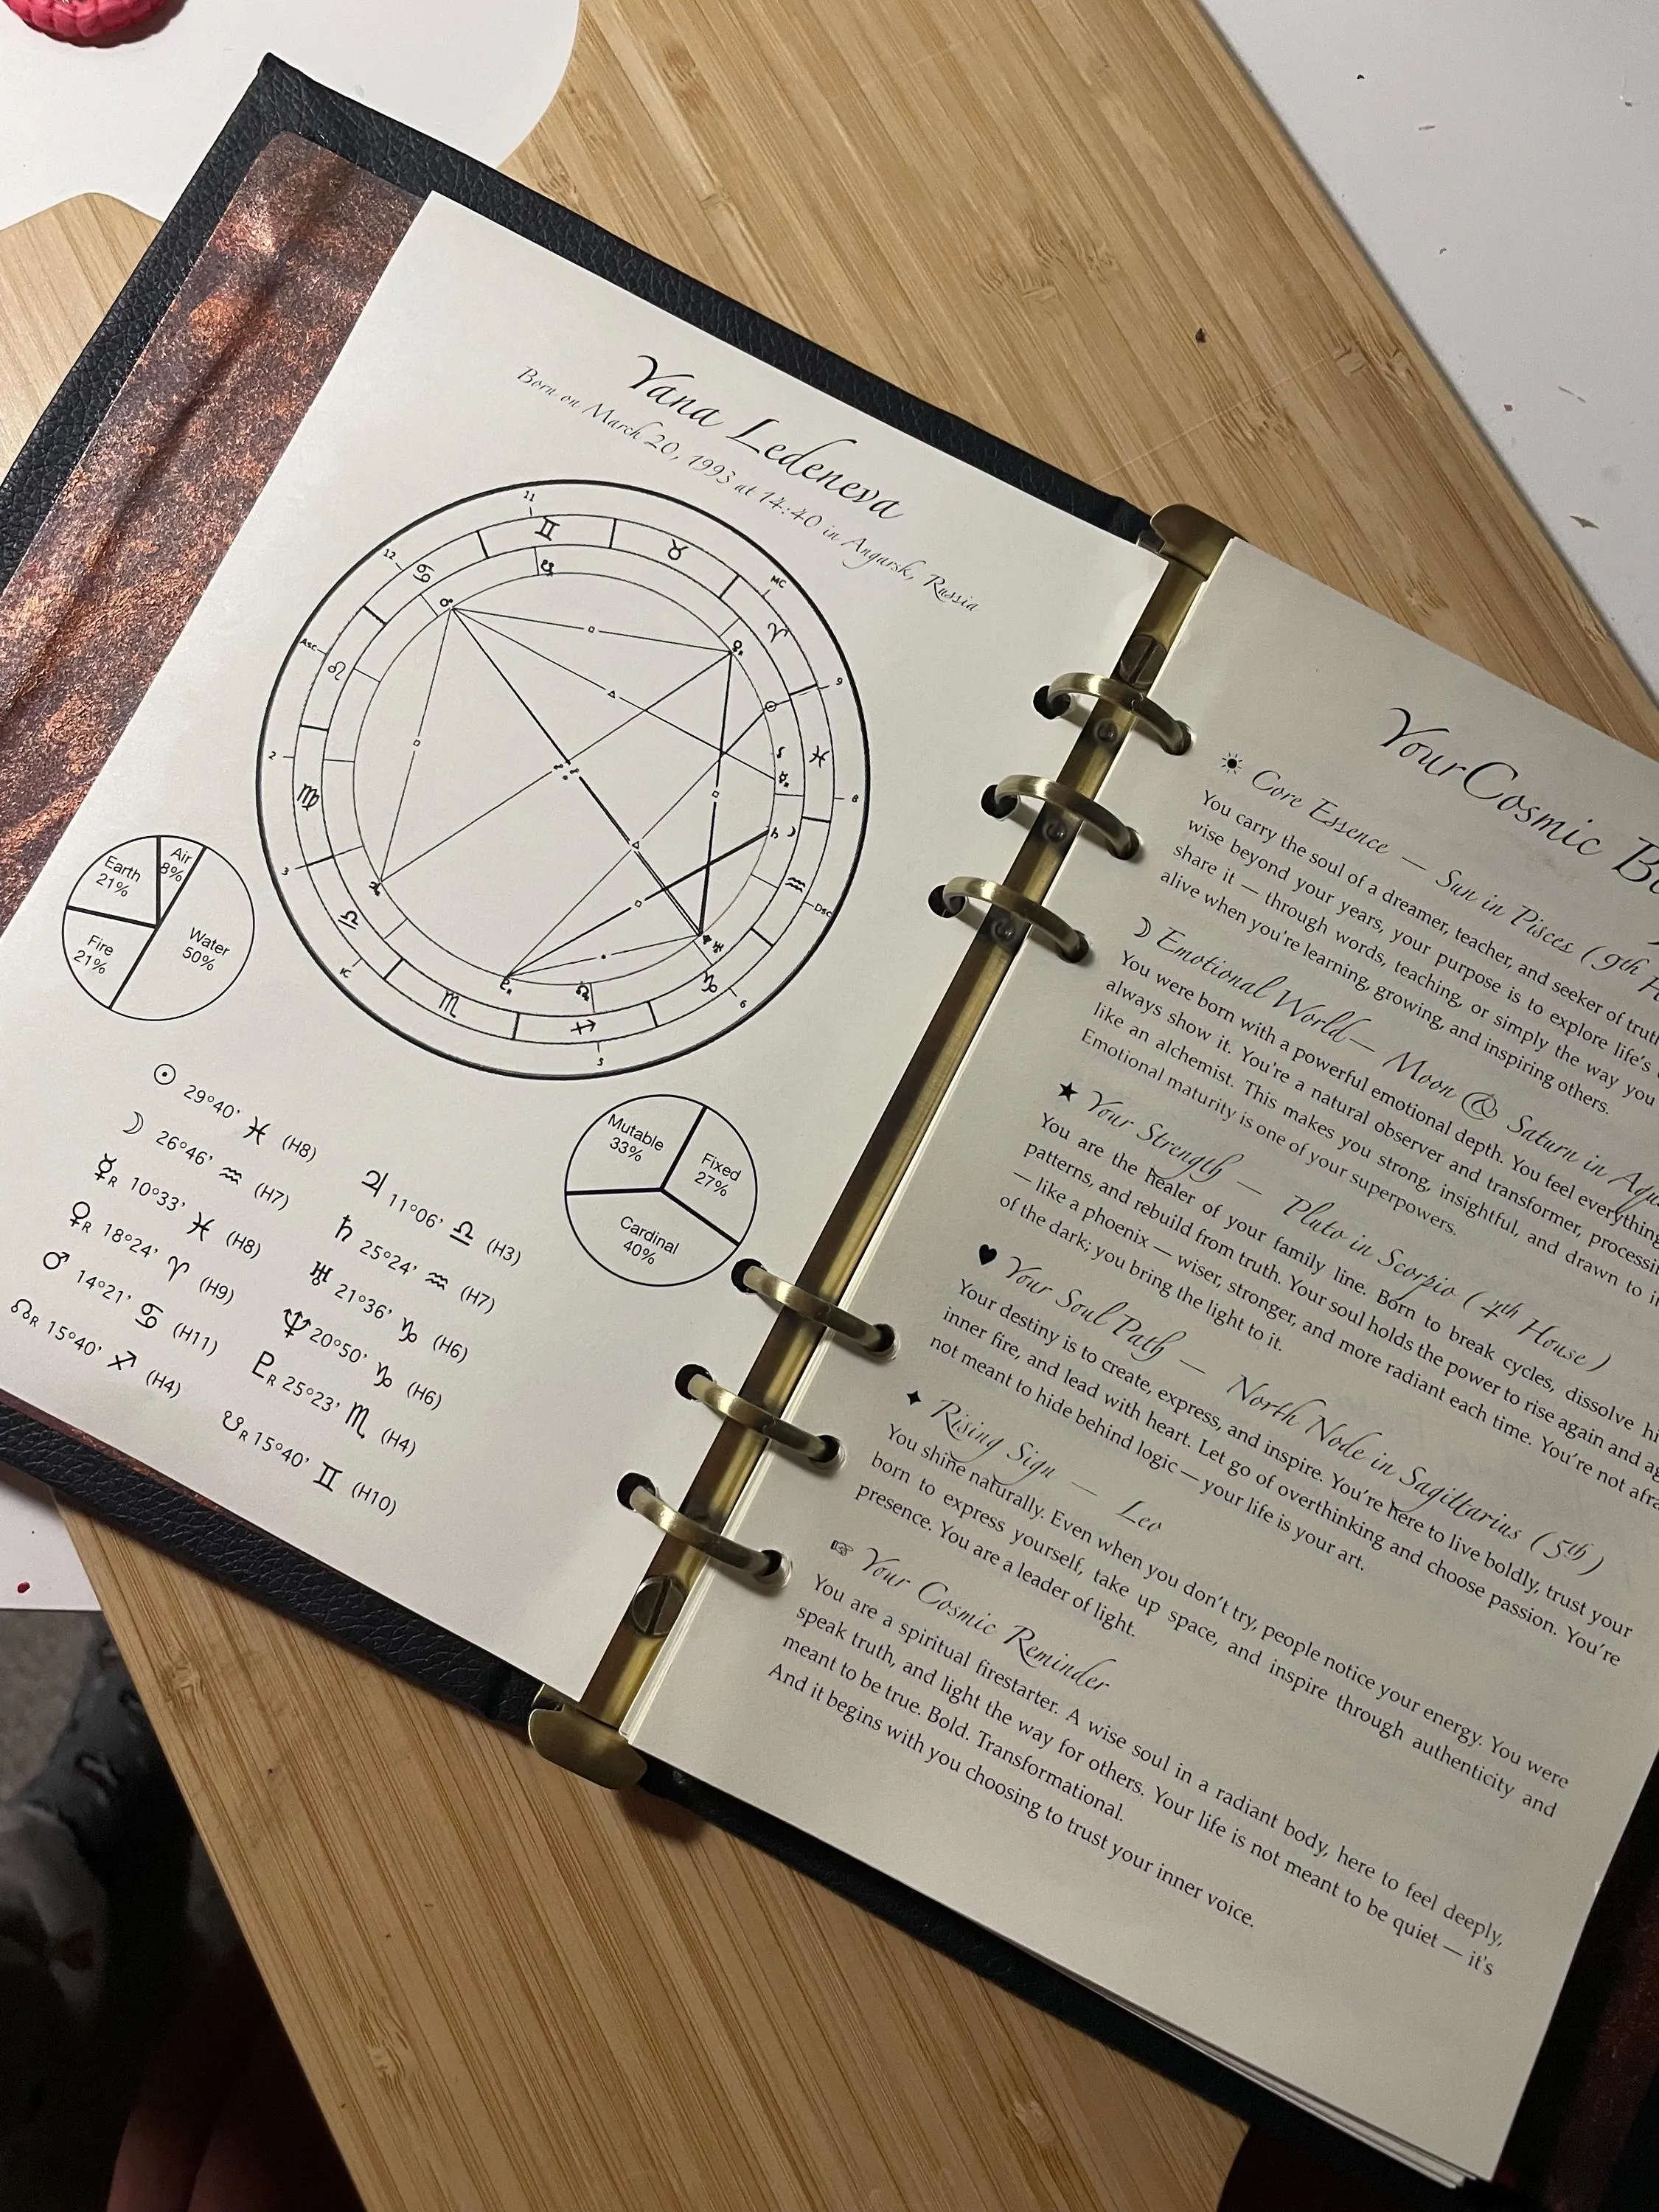 Yana Ledeneva
Born on March 20, 1993 at 14:40 in Angarsk, Russia
11
12
MC
Asc
9
2
8
3
Dsc
IC
6
5
Earth
21%
Air
8%
Fire
21%
Water
50%
Mutable
33%
Fixed
27%
Cardinal
40%
☉ 29°40' ♓ (H8)
☽ 26°46' ♒ (H7)
☿R 10°33' ♓ (H8)
♀R 18°24' ♈ (H9)
♂ 14°21' ♋ (H11)
☊R 15°40' ♐ (H4)
♃ 11°06' ♎ (H3)
♄ 25°24' ♒ (H7)
♅ 21°36' ♑ (H6)
♆ 20°50' ♑ (H6)
♇R 25°23' ♏ (H4)
☋R 15°40' ♊ (H10)
Your Cosmic
☀ Core Essence — Sun in Pisces (9th
You carry the soul of a dreamer, teacher, and seeker of
wise beyond your years, your purpose is to explore life's
share it — through words, teaching, or simply the way you
alive when you're learning, growing, and inspiring others.
☽ Emotional World — Moon & Saturn in
You were born with a powerful emotional depth. You feel everything
always show it. You're a natural observer and transformer,
like an alchemist. This makes you strong, insightful, and drawn to
Emotional maturity is one of your superpowers.
★ Your Strength — Pluto in Scorpio (4th House)
You are the healer of your family line. Born to break cycles, dissolve
patterns, and rebuild from truth. Your soul holds the power to rise again and
— like a phoenix — wiser, stronger, and more radiant each time. You're not
of the dark; you bring the light to it.
♥ Your Soul Path — North Node in Sagittarius (5th)
Your destiny is to create, express, and inspire. You're here to live boldly, trust your
inner fire, and lead with heart. Let go of overthinking and choose passion. You're
not meant to hide behind logic — your life is your art.
✦ Rising Sign — Leo
You shine naturally. Even when you don't try, people notice your energy. You were
born to express yourself, take up space, and inspire through authenticity and
presence. You are a leader of light.
☞ Your Cosmic Reminder
You are a spiritual firestarter. A wise soul in a radiant body, here to feel deeply,
speak truth, and light the way for others. Your life is not meant to be quiet — it's
meant to be true. Bold. Transformational.
And it begins with you choosing to trust your inner voice.